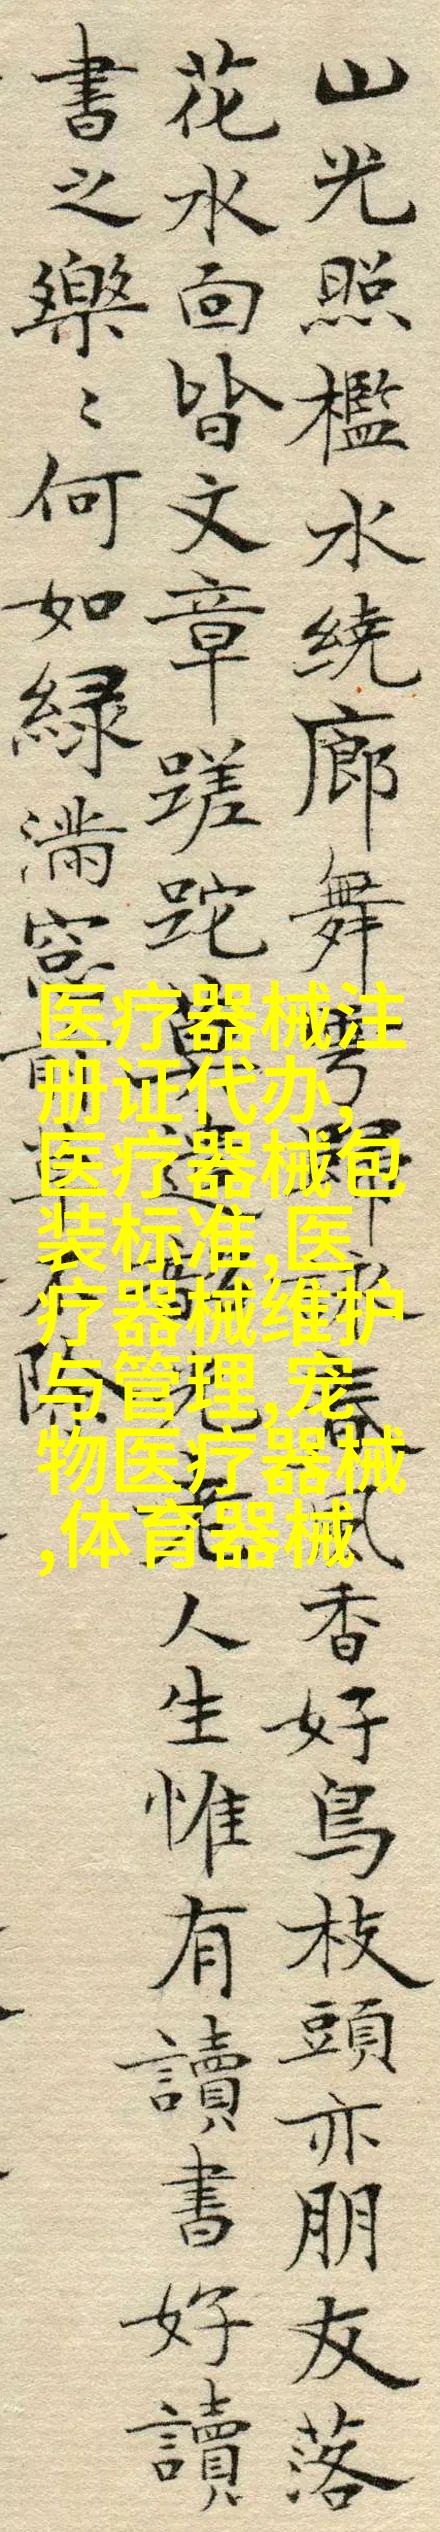 山光照檻水繞廊舞雩歸詠春風香好鳥枝頭亦朋友落
花水面皆文章蹉跎莫遣韶光老人生惟有讀書好讀
書之樂〻何如緑滿窓前草不除
医疗器械注
册证代办,
医疗器械包
装标准,医
疗器械维护
与管理,宠
物医疗器械
,体育器械